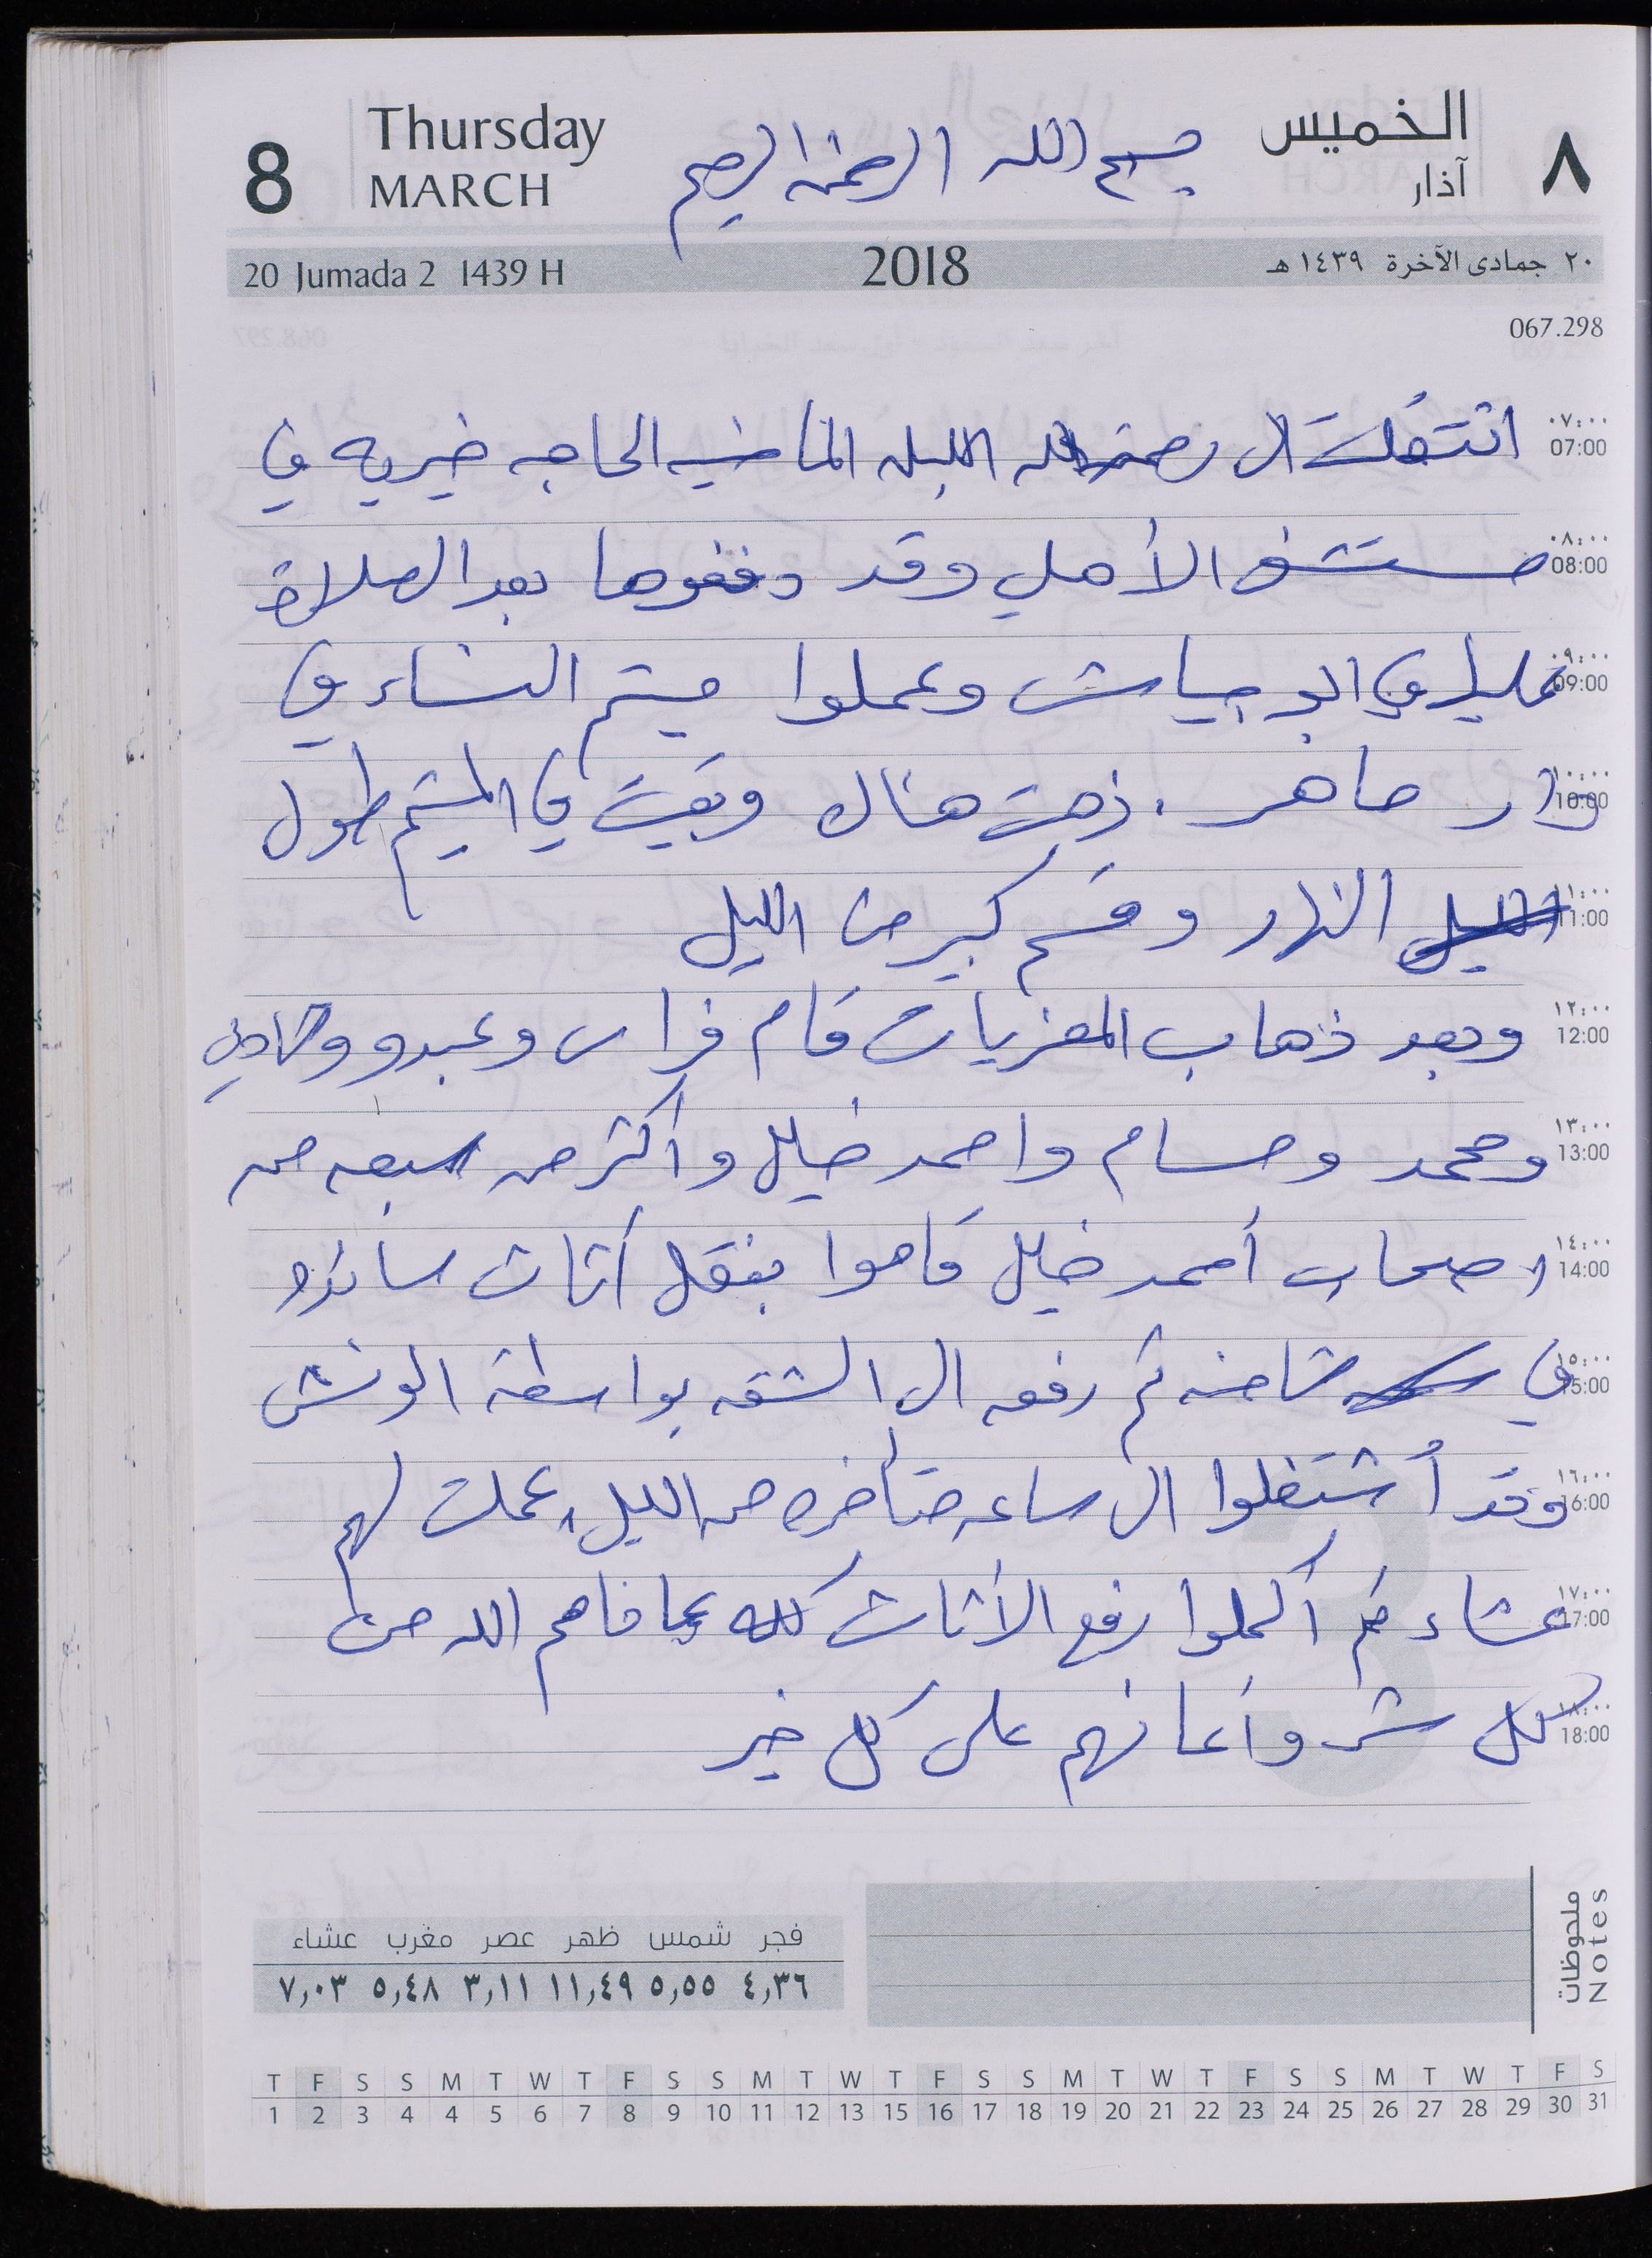 8
Thursday
MARCH
بسم الله الرحمن الرحيم
الخميس
آذار
٨
20 Jumada 2 1439 H
2018
٢٠ جمادى الآخرة ١٤٣٩ هـ
067.298
٠٧:٠٠ 07:00
انتقلت الى رحمة الله الليله الماضيه الحاجه خيريه في
٠٨:٠٠ 08:00
مستشفى الأهلي وقد دفنوها بعد الصلاة
٠٩:٠٠ 09:00
عليها في ابو جياش وعملوا ميتم النساء في
١٠:٠٠ 10:00
دار ماهر . ذهبت هناك وبقيت في الميتم طول
١١:٠٠ 11:00
الليل النهار وقسم كبير من الليل
١٢:٠٠ 12:00
وبعد ذهاب المعزيات قام فراس وعبدو
١٣:٠٠ 13:00
ومحمد وحسام واحمد خليل وأكثر من سبعه من
١٤:٠٠ 14:00
اصحاب أحمد خليل قاموا بنقل أثاث ساندرو
١٥:٠٠ 15:00
في شاحنه ثم رفعه الى الشقه بواسطة الونش
١٦:٠٠ 16:00
وقد أشتغلوا الى ساعه متأخره من الليل، عملت لهم
١٧:٠٠ 17:00
عشاء ثم أكملوا رفع الأثاث كله عافاهم الله من
١٨:٠٠ 18:00
كل شر وأعانهم على كل خير
ملحوظات
Notes
فجر شمس ظهر عصر مغرب عشاء
٤,٣٦ ٥,٥٥ ١١,٤٩ ٣,١١ ٥,٤٨ ٧,٠٣
T F S S M T W T F S S M T W T F S S M T W T F S S M T W T F S
1 2 3 4 4 5 6 7 8 9 10 11 12 13 15 16 17 18 19 20 21 22 23 24 25 26 27 28 29 30 31